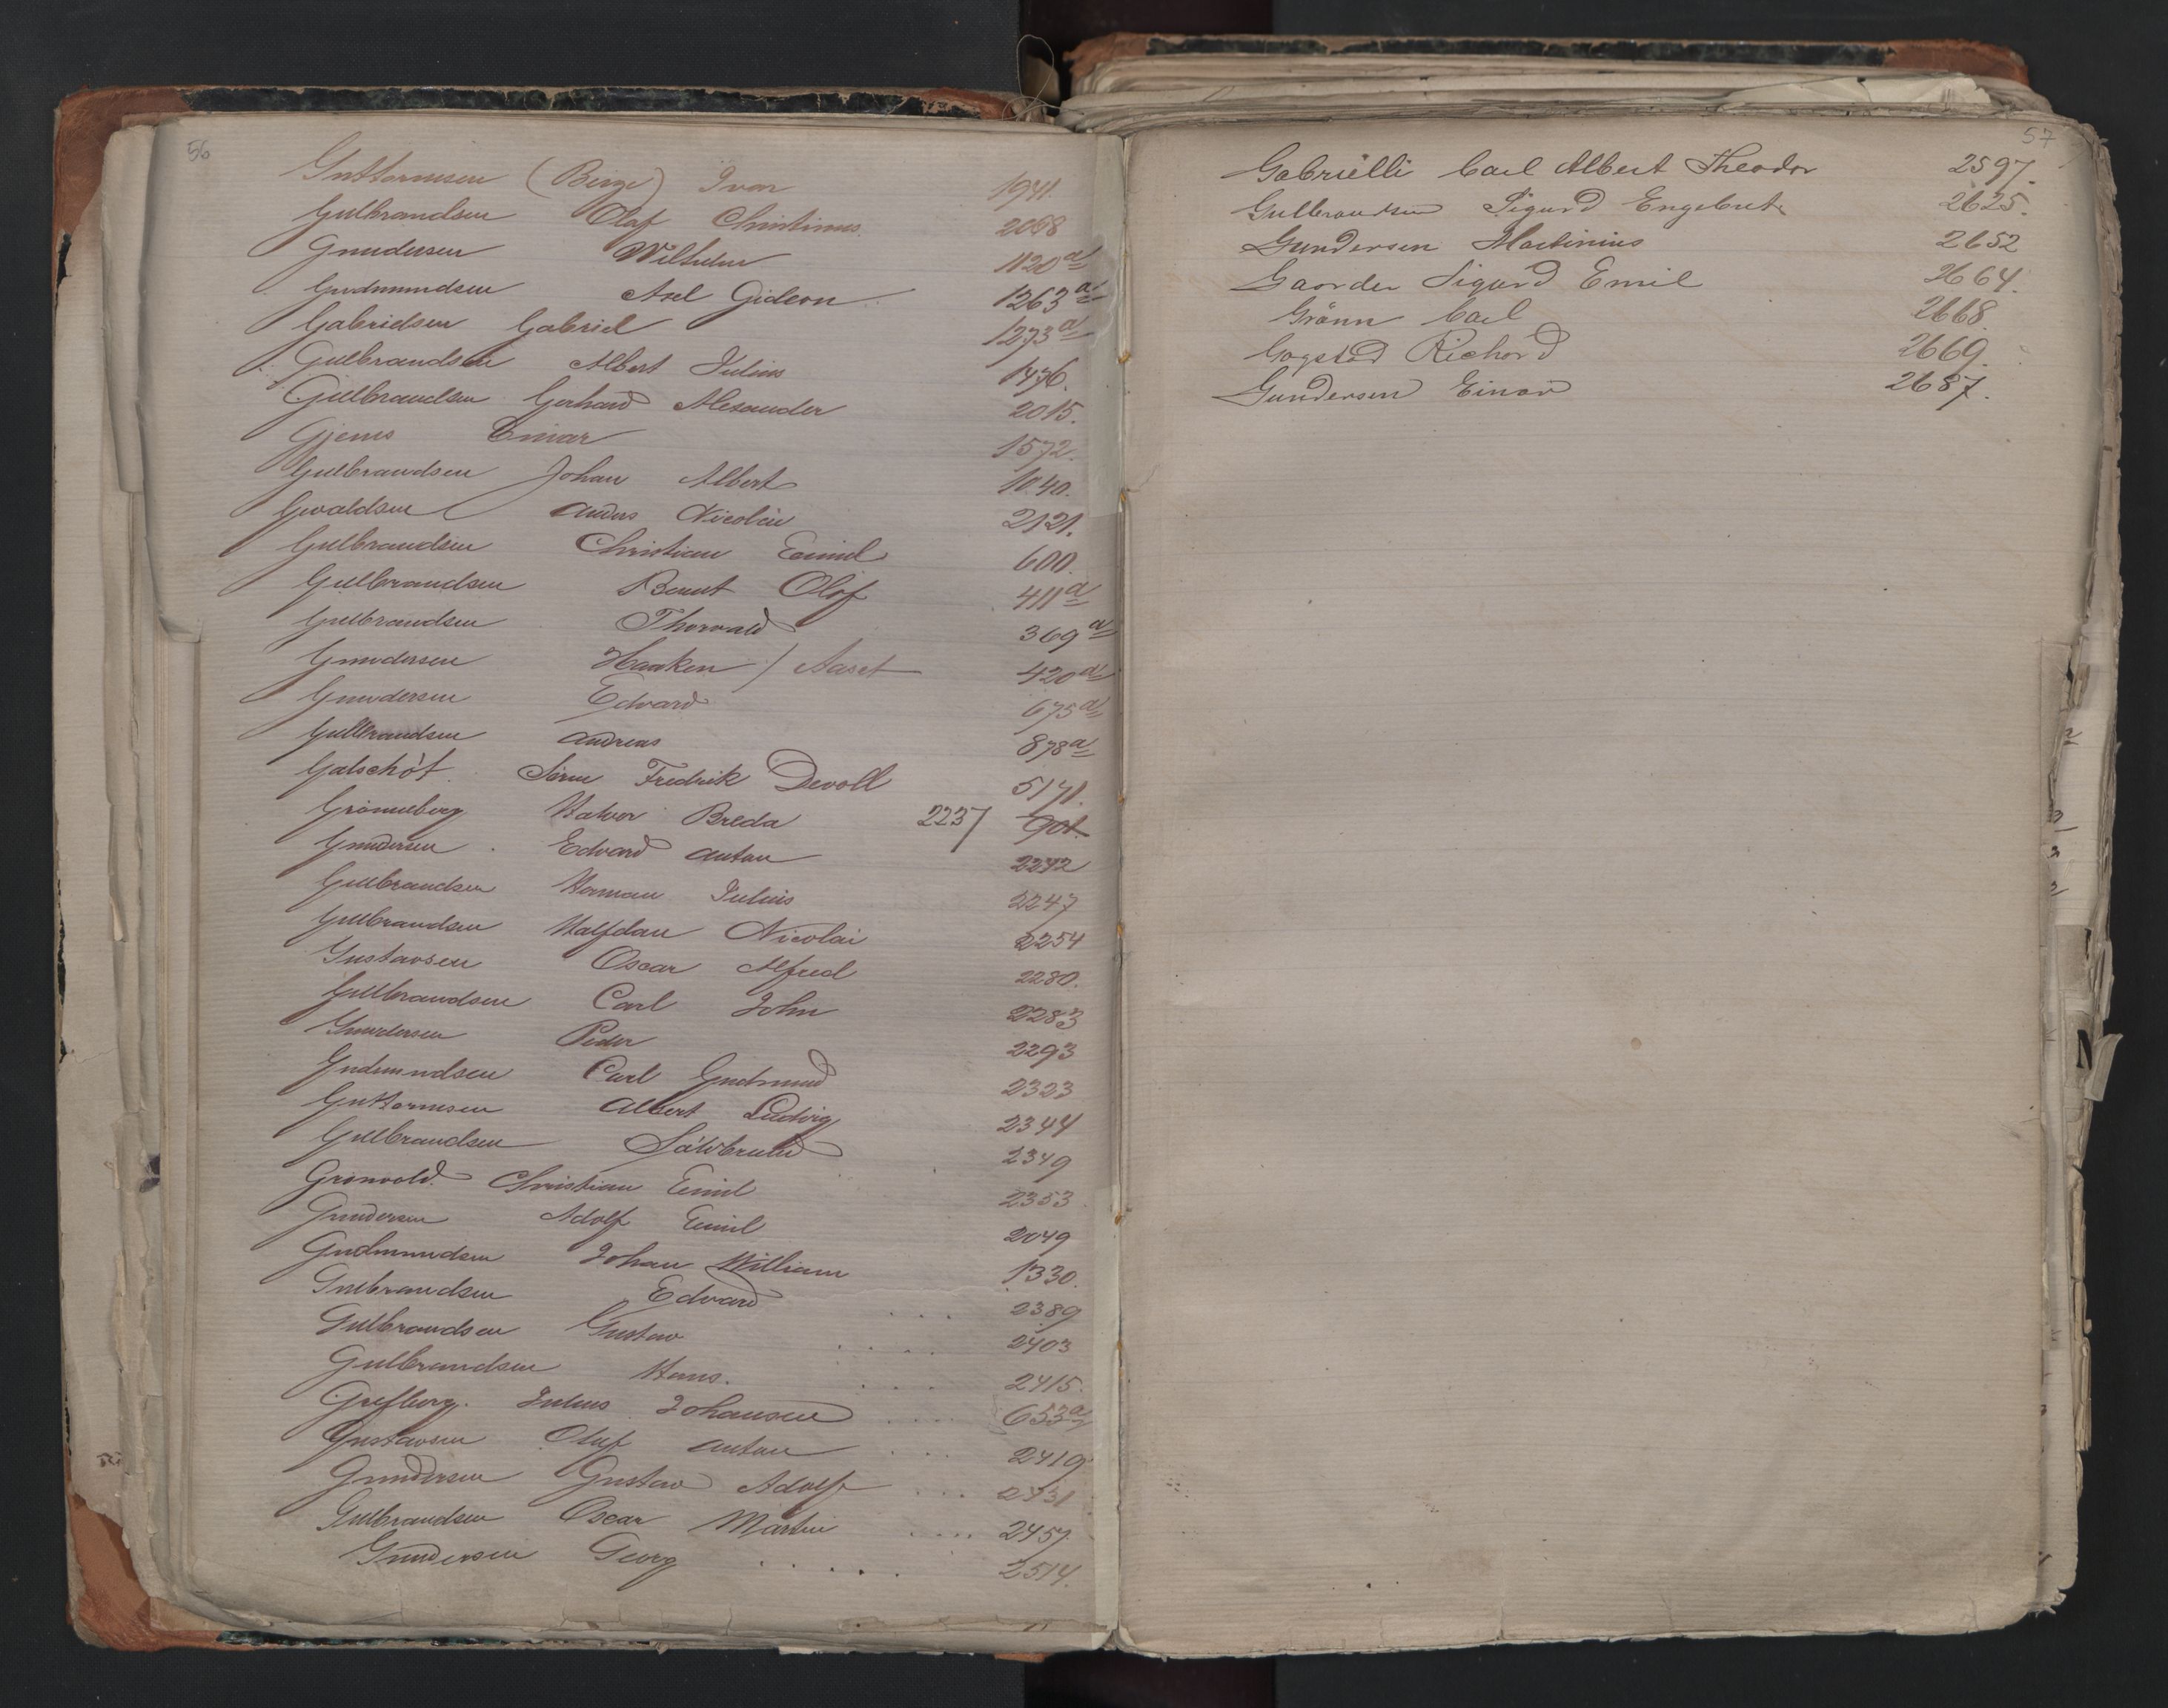 56
Guttormsen (Berge) Ivar 1941.
Gulbrandsen Olaf Christinus 2068
Gundersen Wilhelm 1120 a
Gudmundsen Axel Gideon 1263 a
Gabrielsen Gabriel 1273 a
Gulbrandsen Albert Julius 1476.
Gulbrandsen Gerhard Alexander 2015.
Gjems Einar 1572.
Gulbrandsen Johan Albert 1040.
Anders Nicolai 2121.
Gulbrandsen Christian Emil 600.
Gulbrandsen Bernt Olaf 411 a
Gulbrandsen Thorvald 369 a
Gundersen Haaken / Aaset 420 a
Gundersen Edvard 675 a
Gulbrandsen Andreas 878 a
Galschöt. Sören Fredrik Devoll
Grönneberg Halvor Breda 2237 901.
Gundersen Edvard Anton 2242
Gulbrandsen Herman Julius 2247
Gulbrandsen Halfdan Nicolai 2254
Gustavsen Oscar Alfred 2280.
Gulbrandsen Carl John 2283
Gundersen Peder 2293
Gudmundsen Carl Gudmund 2323
Guttormsen Albert Ludvig 2344
Gulbrandsen 2349
Grönvold. Christian Emil 2353
Gundersen Adolf Emil 2049
Gudmundsen Johan William 1330.
Gulbrandsen Edvard . . . . 2389
Gulbrandsen Gustav . . . . 2403
Gulbrandsen Hans. . . . . 2415.
Julius Johansen . . . . 653 a
Gustavsen Olaf Anton . . . 2419
Gundersen Gustav Adolf . . . 2431
Gulbrandsen Oscar Martin . . . . 2457.
Gundersen Georg . . . . . 2514.
57
Gabrielli Carl Albert Theodor 2597.
Gulbrandsen Sigurd Engebret 2625.
Gundersen Martinius 2652
Gaarder Sigurd Emil 2664.
Grönn Carl 2668.
Gogstad Richard 2669.
Gundersen Einar 2687.
N